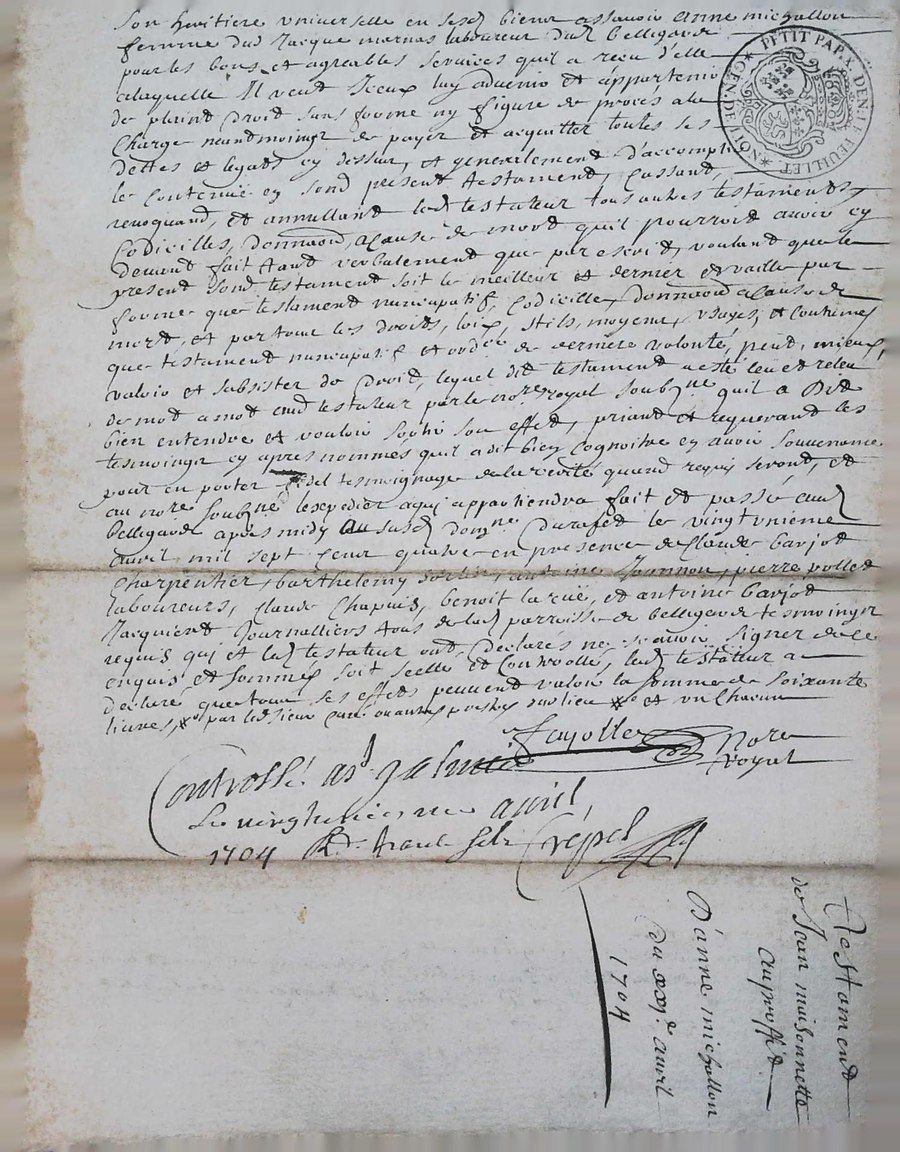 son heritiere universelle en sesd biens assavoir anne michallon
femme dud Jacque marnas laboureur dud bellegarde
pour les bons et agreables services quil a receu d'elle
a laquelle Il veud Iceux luy advenir et appartenir
de plaind droid sans forme ny figure de procés a la
Charge neandmoings de payer et acquitter toutes ses
dettes et legats cy dessus, et generalement d'accompl
le Contenue en sond present testament, Cassand,
revoquand, et annulland led testateur tous autres testaments
Codicilles, donnaon, acause de mord quil pourroid avoir cy
devand fait tand verbalement que par escrid, vouland que le
present sond testament soit le meilleur et dernier et vaille par
forme que testament nuncupatif, Codicille, donnaon acause de
mord, et par tous les droits, loix, stils, moyens, usages, et Coutumes
que testament nuncupatif et ord.re de derniere volonté, peut, mieux,
valoir et subsister de droid, lequel dit testament a esté leu et releu
de mod a mod aud testateur par le no.re royal soubz.ne quil a Did
bien entendre et vouloir sortir son effed, priand et requerand les
tesmoings cy apres nommés quil a dit bien Cognoitre en avoir souvenance
pour en porter fidel tesmoignage de la verité quand requis serond, et
au no.re soubzné lexpedier a qui appartiendra fait et passé aud
bellegarde apres midy au susd dom.ne Durafed le vingtunieme
avril mil sept Cens quatre en presence de Claude barjod
Charpentier, barthelemy antoine Jounnou, pierre pollet
laboureurs, Claude Chapuis, benoit larüe, et antoine barjod
Jacquiend Journalliers tous de lad parroisse de bellegarde tesmoings
requis qui et led testateur ond Declarés ne scavoir signer de ce
enquis et sommés soit scellé et Controollé, led testateur a
declaré que tous ses effets peuvent valoir la somme de soixante
livres, par led sieur Curé ou autres prestres dud lieu et un Chacun
Fayolle Nore
royal
Controllé a s.t galmie
Le vingthuictieme avril
1704 Crépel
Testamend
de Jean maisonnette
au proffid
D'anne michallon
du xxj.e avril
1704
PETIT PAP. X. DEN. LE FEUILLET